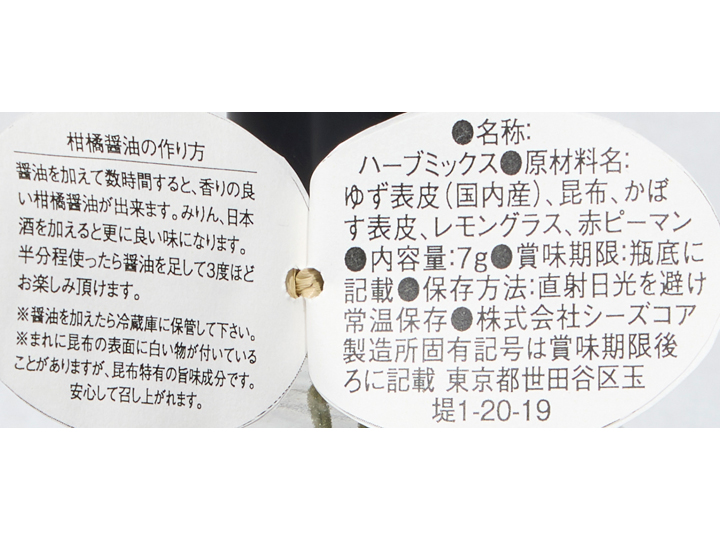 柑橘醤油の作り方
醤油を加えて数時間すると、香りの良
い柑橘醤油が出来ます。みりん、日本
酒を加えると更に良い味になります。
半分程使ったら醤油を足して3度ほど
お楽しみ頂けます。
※醤油を加えたら冷蔵庫に保管して下さい。
※まれに昆布の表面に白い物が付いている
ことがありますが、昆布特有の旨味成分です。
安心して召し上がれます。
●名称:
ハーブミックス●原材料名:
ゆず表皮(国内産)、昆布、かぼ
す表皮、レモングラス、赤ピーマン
●内容量:7g●賞味期限:瓶底に
記載●保存方法:直射日光を避け
常温保存●株式会社シーズコア
製造所固有記号は賞味期限後
ろに記載 東京都世田谷区玉
堤1-20-19